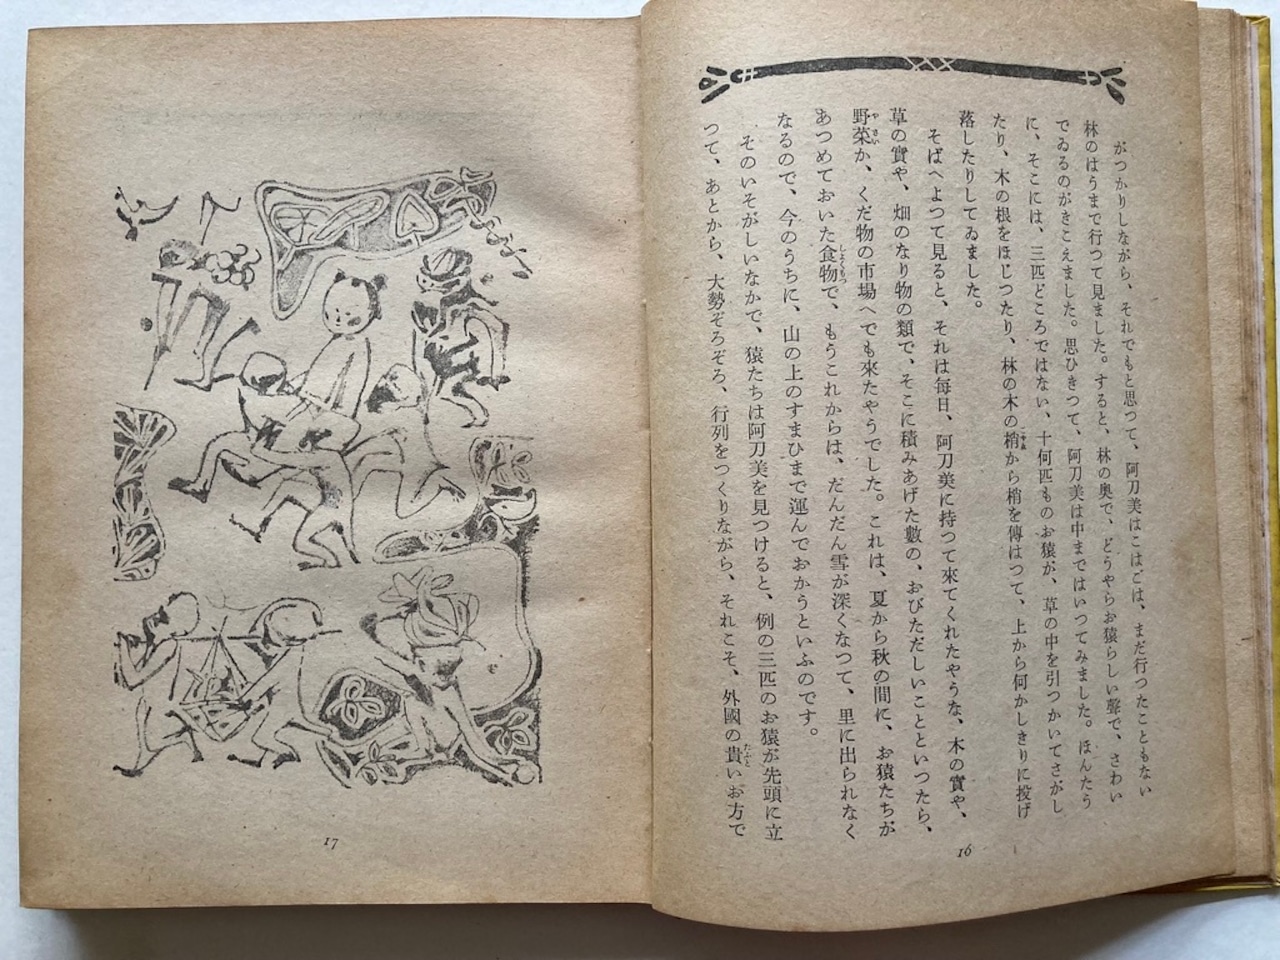 がつかりしながら、それでもと思つて、阿刀美はこはごは、まだ行つたこともない
林のはうまで行つて見ました。すると、林の奥で、どうやらお猿らしい聲で、さわい
でゐるのがきこえました。思ひきつて、阿刀美は中まではいつてみました。ほんたう
に、そこには、三匹どころではない、十何匹ものお猿が、草の中を引つかいてさがし
たり、木の根をほじつたり、林の木の梢から梢を傳はつて、上から何かしきりに投げ
落したりしてゐました。
そばへよつて見ると、それは每日、阿刀美に持つて來てくれたやうな、木の實や、
草の實や、畑のなり物の類で、そこに積みあげた數の、おびただしいことといつたら、
野菜か、くだ物の市場へでも來たやうでした。これは、夏から秋の間に、お猿たちが
あつめておいた食物で、もうこれからは、だんだん雪が深くなつて、里に出られなく
なるので、今のうちに、山の上のすまひまで運んでおかうといふのです。
そのいそがしいなかで、猿たちは阿刀美を見つけると、例の三匹のお猿が先頭に立
つて、あとから、大勢ぞろぞろ、行列をつくりながら、それこそ、外國の貴いお方で
16
17